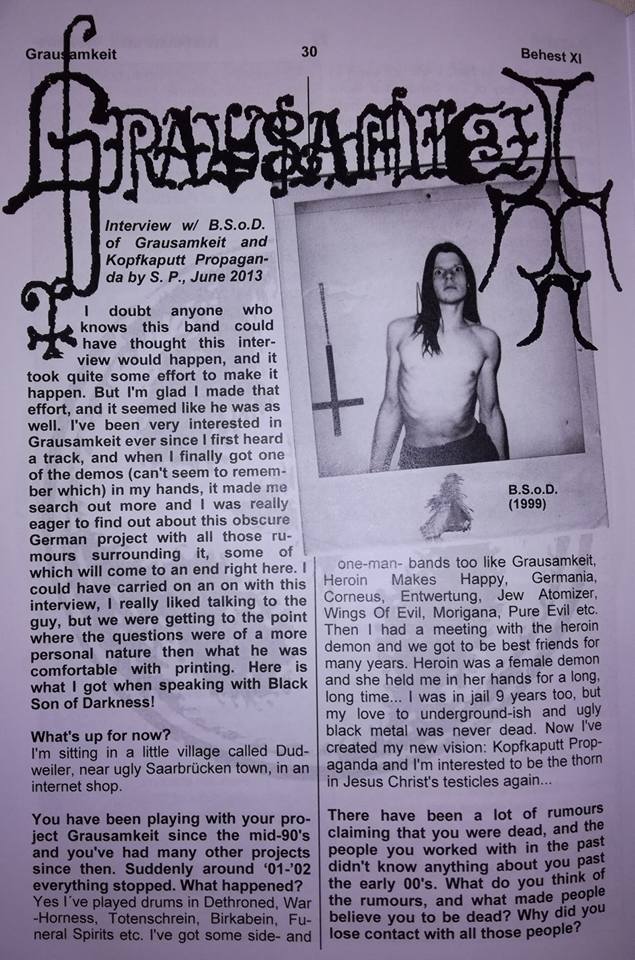 Grausamkeit
30
Behest XI
GRAUSAMKEIT
Interview w/ B.S.o.D.
of Grausamkeit and
Kopfkaputt Propagan-
da by S. P., June 2013
I doubt anyone who
knows this band could
have thought this inter-
view would happen, and it
took quite some effort to make it
happen. But I'm glad I made that
effort, and it seemed like he was as
well. I've been very interested in
Grausamkeit ever since I first heard
a track, and when I finally got one
of the demos (can't seem to remem-
ber which) in my hands, it made me
search out more and I was really
eager to find out about this obscure
German project with all those ru-
mours surrounding it, some of
which will come to an end right here. I
could have carried on an on with this
interview, I really liked talking to the
guy, but we were getting to the point
where the questions were of a more
personal nature then what he was
comfortable with printing. Here is
what I got when speaking with Black
Son of Darkness!
What's up for now?
I'm sitting in a little village called Dud-
weiler, near ugly Saarbrücken town, in an
internet shop.
You have been playing with your pro-
ject Grausamkeit since the mid-90's
and you've had many other projects
since then. Suddenly around '01-'02
everything stopped. What happened?
Yes I´ve played drums in Dethroned, War
-Horness, Totenschrein, Birkabein, Fu-
neral Spirits etc. I've got some side- and
B.S.o.D.
(1999)
one-man- bands too like Grausamkeit,
Heroin Makes Happy, Germania,
Corneus, Entwertung, Jew Atomizer,
Wings Of Evil, Morigana, Pure Evil etc.
Then I had a meeting with the heroin
demon and we got to be best friends for
many years. Heroin was a female demon
and she held me in her hands for a long,
long time... I was in jail 9 years too, but
my love to underground-ish and ugly
black metal was never dead. Now I've
created my new vision: Kopfkaputt Prop-
aganda and I'm interested to be the thorn
in Jesus Christ's testicles again...
There have been a lot of rumours
claiming that you were dead, and the
people you worked with in the past
didn't know anything about you past
the early 00's. What do you think of
the rumours, and what made people
believe you to be dead? Why did you
lose contact with all those people?